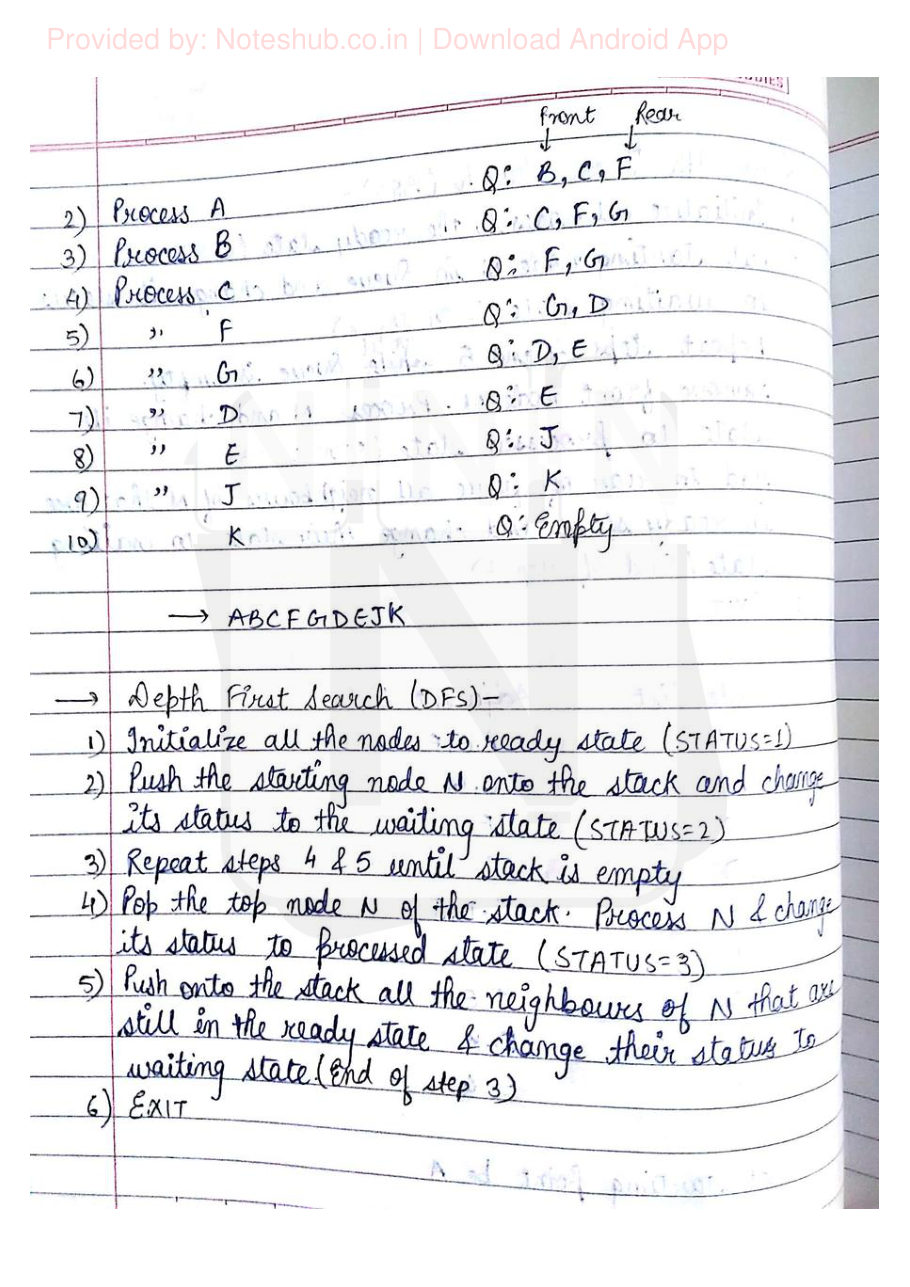 Provided by: Noteshub.co.in | Download Android App
front Rear
2) Process A Q: B, C, F
3) Process B Q: C, F, G
4) Process C Q: F, G
5) " F Q: G, D
6) " G Q: D, E
7) " D Q: E
8) " E Q: J
9) " J Q: K
10) K Q: Empty
→ ABCFGDEJK
→ Depth First Search (DFS)-
1) Initialize all the nodes to ready state (STATUS=1)
2) Push the starting node N onto the stack and change
its status to the waiting state (STATUS=2)
3) Repeat steps 4 & 5 until stack is empty
4) Pop the top node N of the stack. Process N & change
its status to processed state (STATUS=3)
5) Push onto the stack all the neighbours of N that are
still in the ready state & change their status to
waiting state (End of step 3)
6) EXIT